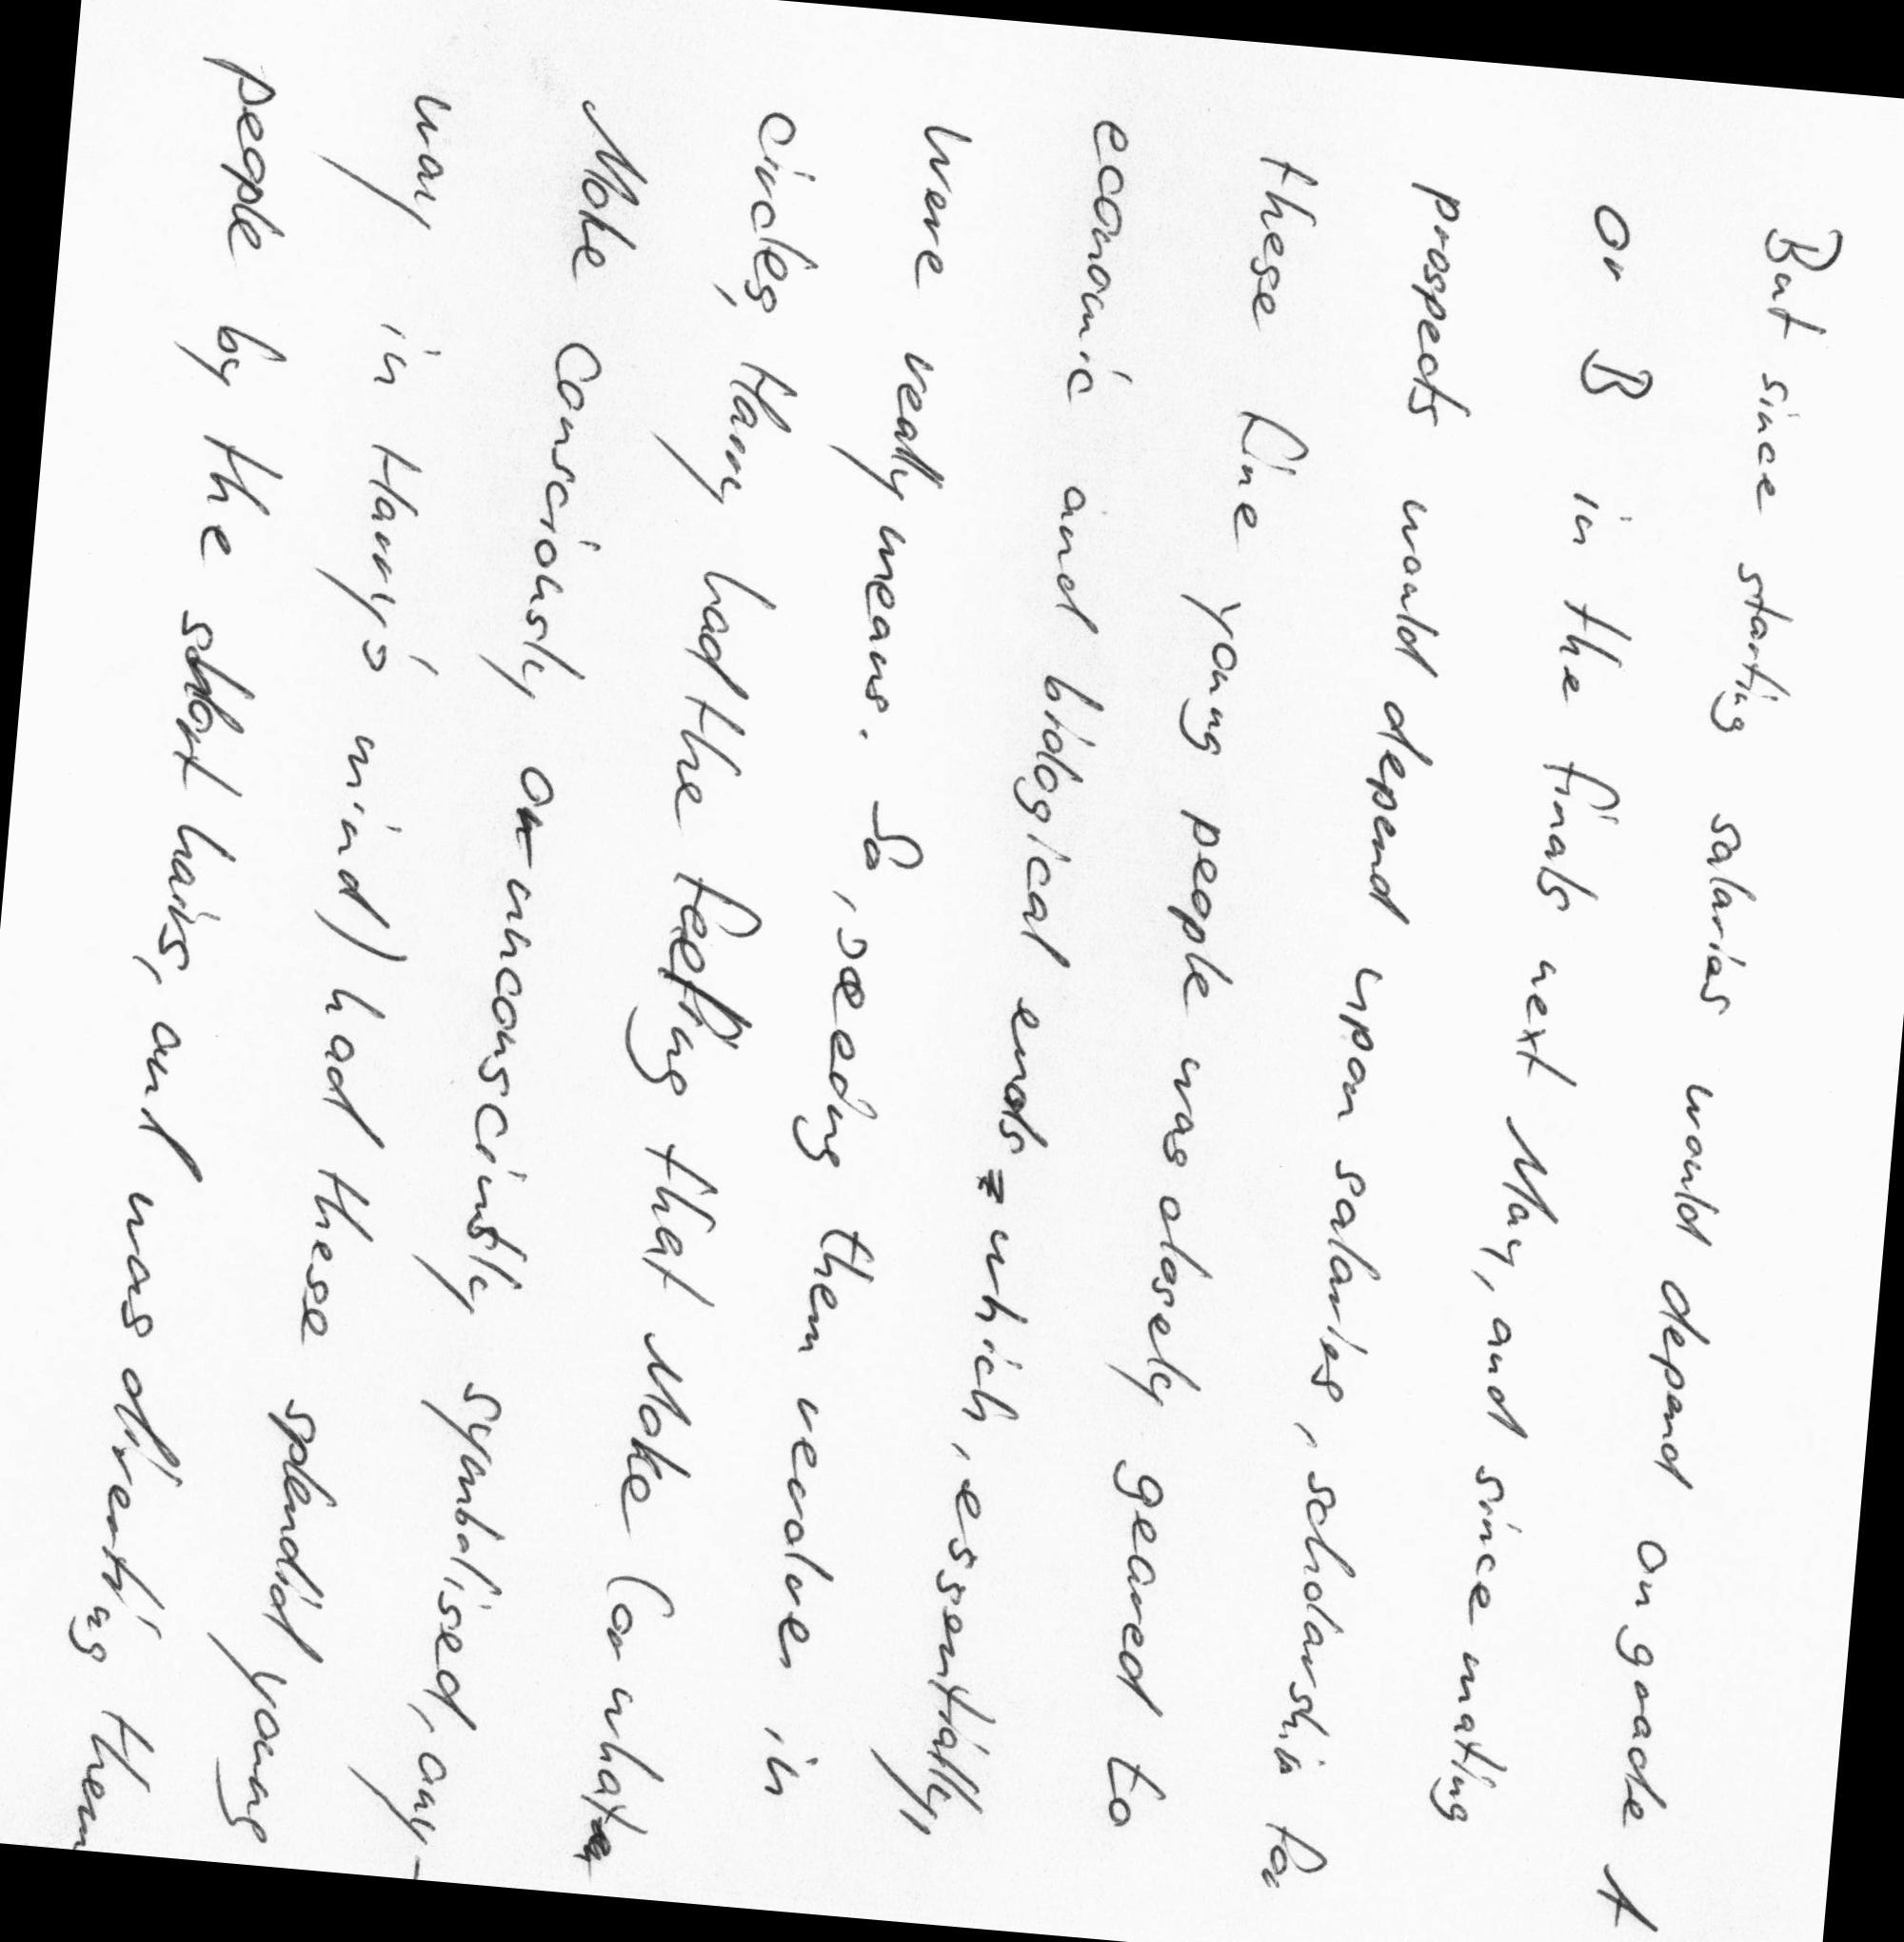 But since starting salaries would depend on grade A
or B in the finals next May, and since mating
prospects would depend upon salaries, scholarship for
these fine young people was closely geared to
economic and biological ends which, essentially,
were really means. So, seeing them revolve in
circles, Harry had the feeling that Moke (or what
Moke consciously or unconsciously symbolised, any-
way in Harry's mind) had these splendid young
people by the short hairs, and was directing them